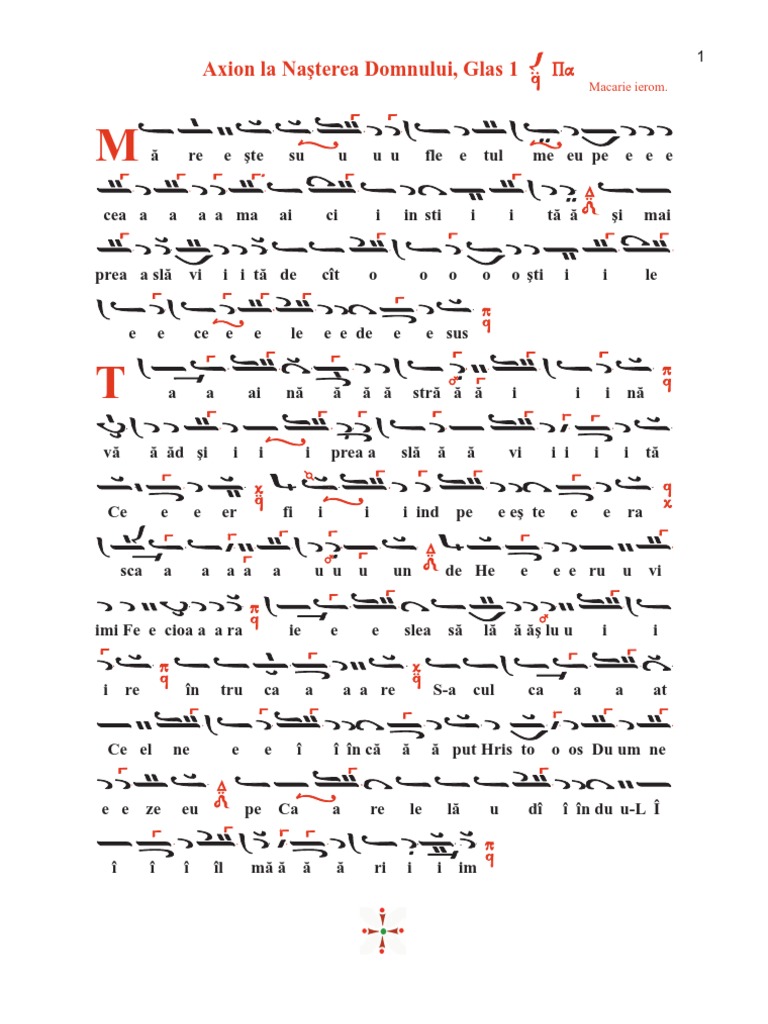 1
Axion la Naşterea Domnului, Glas 1 Πα
Macarie ierom.
M ă re e şte su u u u fle e tul me eu pe e e e
cea a a a a ma ai ci i in sti i i tă ă şi mai
prea a slă vi i i tă de cît o o o o o şti i i le
e e ce e e le e e de e e sus
T a a ai nă ă ă ă stră ă ă i i i nă
vă ă ăd şi i i i prea a slă ă ă vi i i i i tă
Ce e e er fi i i i ind pe e eş te e e ra
sca a a a a a u u u un de He e e e ru u vi
imi Fe e cioa a a ra ie e e slea să lă ă ăş lu u i i
i re în tru ca a a a re S-a cul ca a a at
Ce el ne e e î î în că ă ă put Hris to o os Du um ne
e e ze eu pe Ca a re le lă u dî î în du u-L Î
î î î îl mă ă ă ă ri i i im